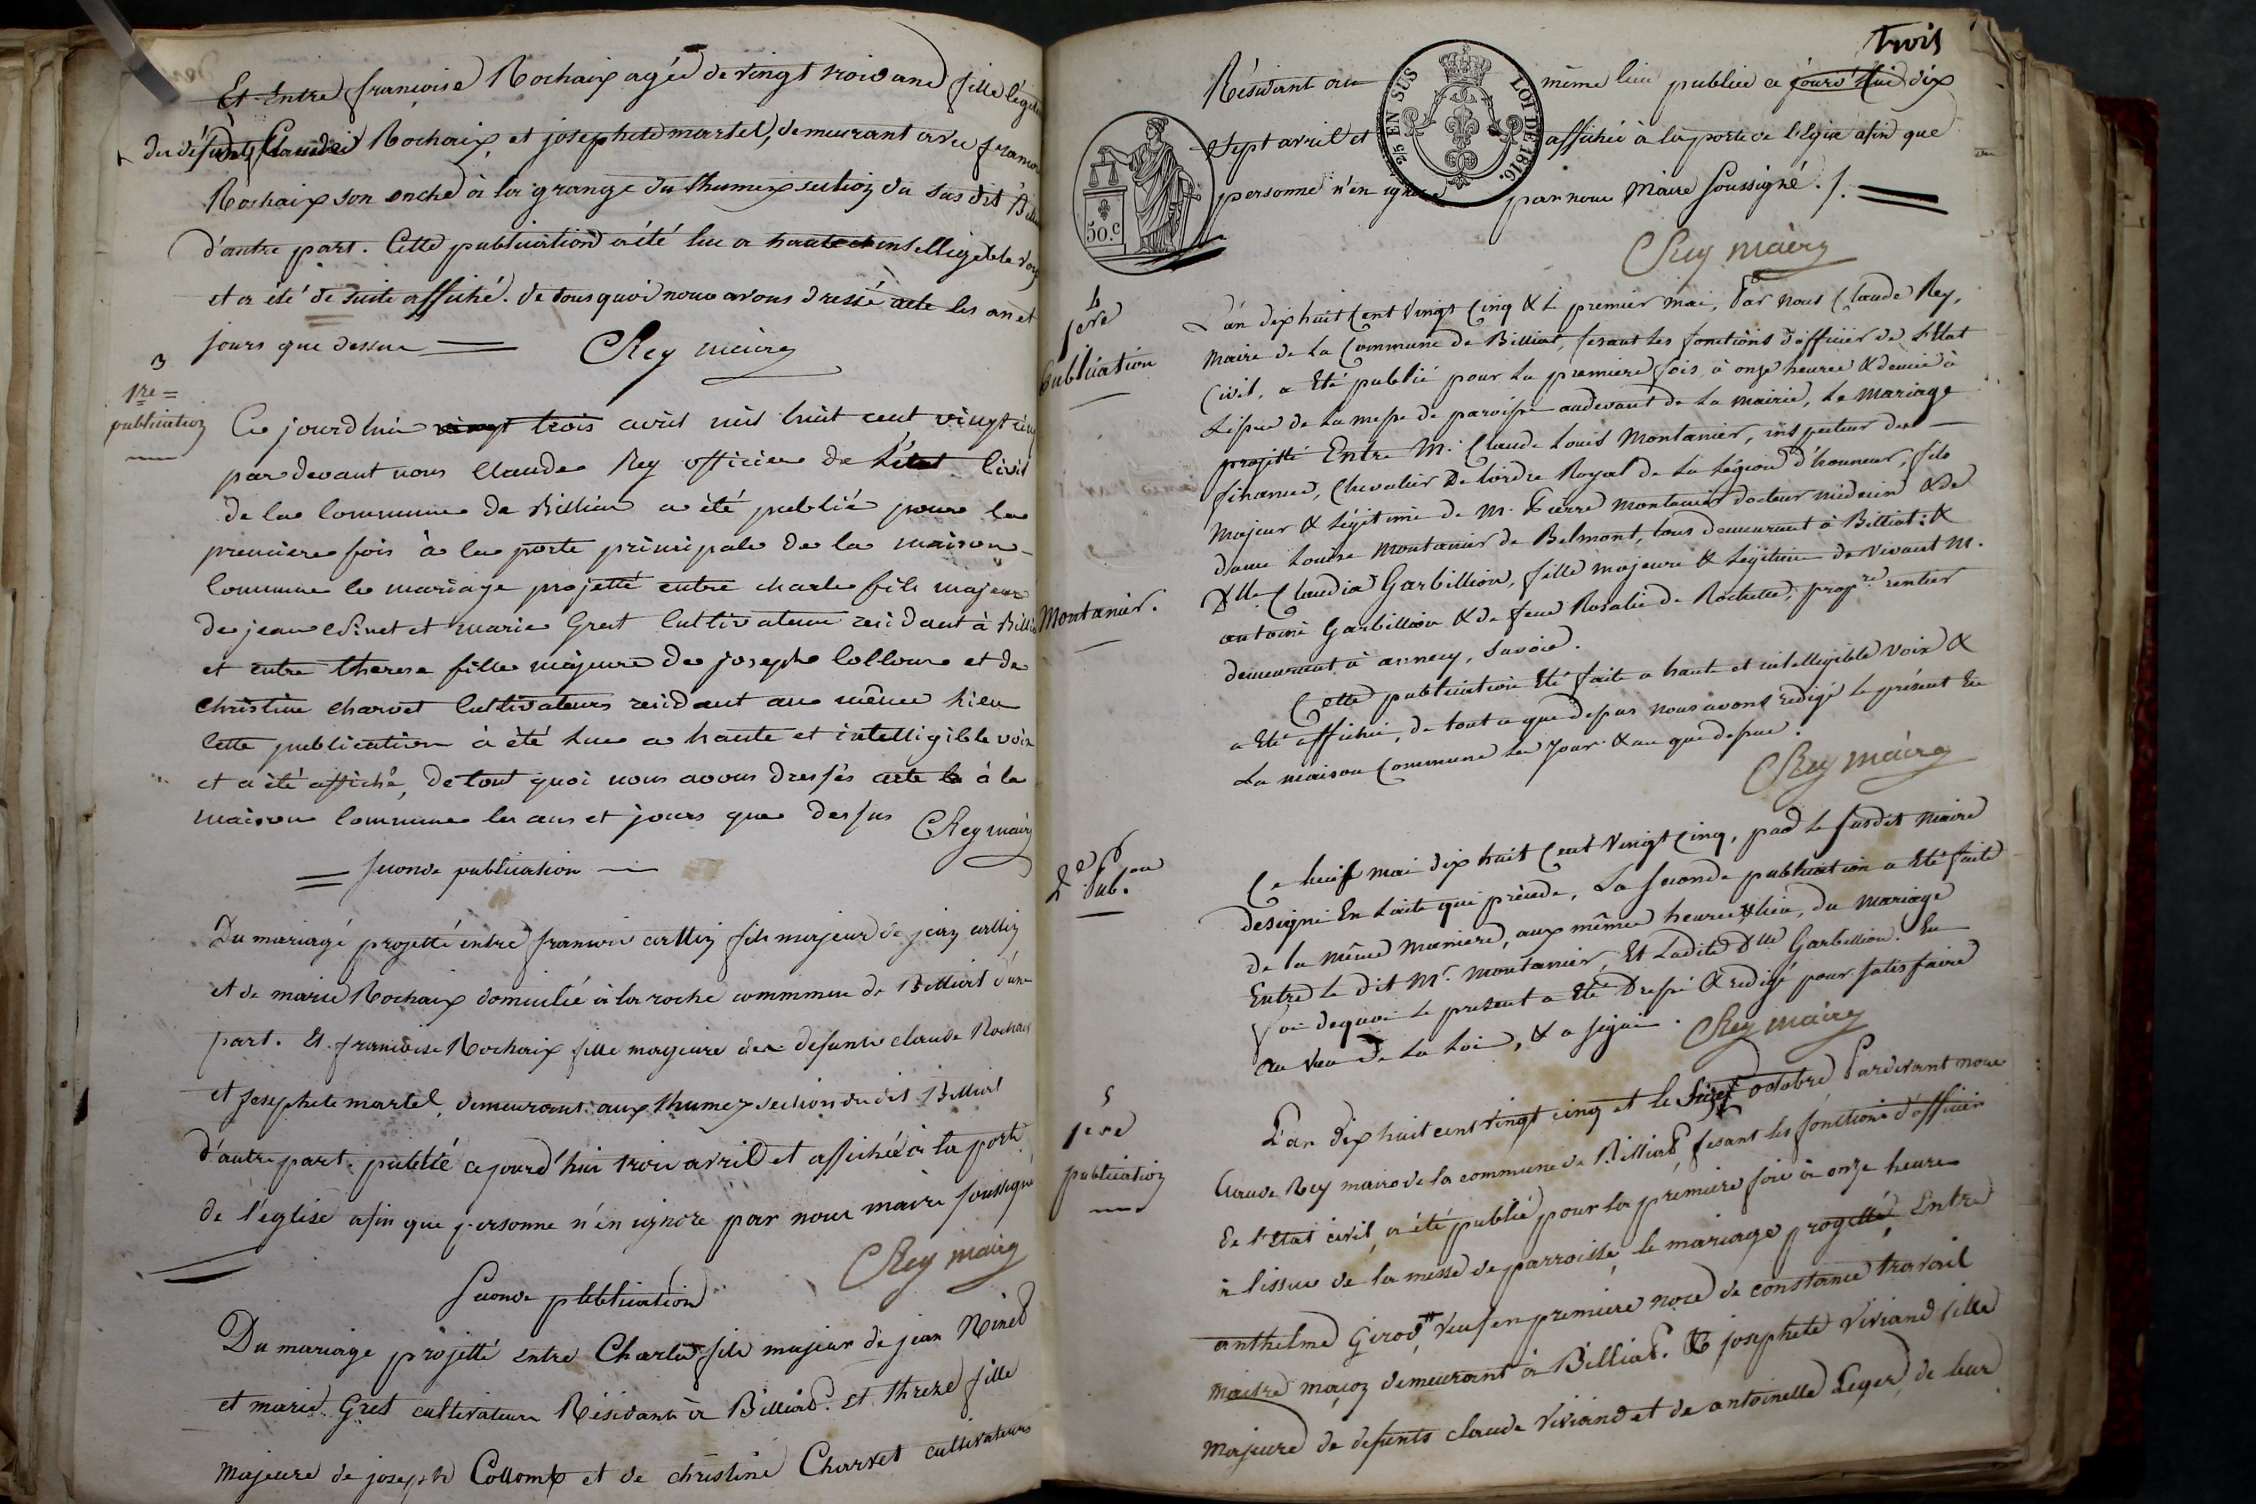 Et Entre françoise Rochaix agée de vingt trois ans fille légit
du défunt Claude Rochaix, et josephete martel, demeurant avec franco
Rochaix son oncle à la grange du thumex section du sus dit
d'autre part. Cette publication a été lue a haute et intelligeble voix
et a été de suite affiché. de tous quoi nous avons dressé acte les an et
jours que dessus
CRey maire
3
1re
publication
Ce jourdhui vingt trois avril mil huit cent vingt cinq
par devant nous Claude Rey officier de L'état Civil
de la Commune de Billiat a été publié pour la
premiere fois à la porte principale de la maison
Commune le mariage projetté entre charle fils majeur
de jean Ninet et marie Gret Cultivateur residant à Billia
et entre therese fille majeure de joseph Collomp et de
Christine Charvet Cultivateurs residant au même Lieu
Cette publication à été Lue a haute et intelligible voix
et a été affiché, de tout quoi nous avons dressés acte à la
maison Commune les ans et jours que dessus
CRey maire
seconde publication
Du mariagé projetté entre francois
fils majeur de
et de marie Rochaix domicilié à la roche commune de Billiat d'une
part. Et francoise Rochaix fille majeure de defunt claude Rochaix
et josephete martel, demeurant aux thumex section du dit Billiat
d'autre part. publié ce jourd'hui trois avril et affichée à la porte
de l'eglise afin que personne n'en ignore par nous maire soussigné
CRey maire
Seconde publication
Du mariage projetté entre Charle fils majeur de jean Ninet
et marie Gret cultivateur Résidant à Billiat. et threze fille
majeure de joseph Collomp et de christine Charvet cultivateurs
trois
Résidant au même lieu publiée ce jourd'hui dix
sept avril et affichée à la porte de l'eglise afin que
personne n'en ignore par nous Maire soussigné.
2/5 EN SUS
LOI DE 1816.
50.c
CRey maire
4
1ere
publication
Montanier.
L'an dix huit Cent Vingt Cinq & Le premier mai, Par nous Claude Rey,
maire de La Commune de Billiat, fesant les fonctions d'officier de L'Etat
Civil, a Eté publié pour La premiere fois, à onze heures & demie à
L'issue de La messe de paroisse audevant de La mairie, Le Mariage
projetté Entre M. Claude Louis Montanier, inspecteur des
finances, Chevalier De L'ordre Royal de La Légion d'honneur, fils
Majeur & Légitime de M. Pierre Montanier docteur médecin & de
dame Louise Montanier de Belmont, tous demeurant à Billiat: &
Dlle Claudia Garbillion, fille majeure & Légitime de vivant M.
antoine Garbillion & de feue Rosalie de Rochette, propre rentier
demeurant à annecy, Savoie.
Cette publication Eté faite a haute et intelligible voix &
a Eté affichée, de tout ce que dessus nous avons redigé Le présent En
La maison Commune Les Jour & an que dessus.
CRey maire
2e Pub.on
Ce huit mai dix huit Cent Vingt Cinq, par Le susdit Maire
designé En L'acte qui précede, La seconde publication a Eté faite
de la même maniere, aux même heures & lieu, du Mariage
Entre Le dit Mr. Montanier, Et Ladite Dlle Garbillion. En
foi dequoi Le present a Eté Dressé & redigé pour satisfaire
au Vœu de La Loi, & a signé.
CRey maire
5
1ere
publication
L'an dix huit cent vingt cinq et le seize octobre Pardevant nous
Claude Rey maire de la commune de Billiat, fesant les fonctions d'officier
de l'Etat civil, a été publié pour la premiere fois à onze heures
à l'issue de la messe de parroisse, le mariage progetté, Entre
anthelme Girod, veuf en premiere noce de constance travail
maitre maçon demeurant à Billiat. & josephete Viviand fille
majeure de defunts claude Viviand et de antoinette Leger, de leur